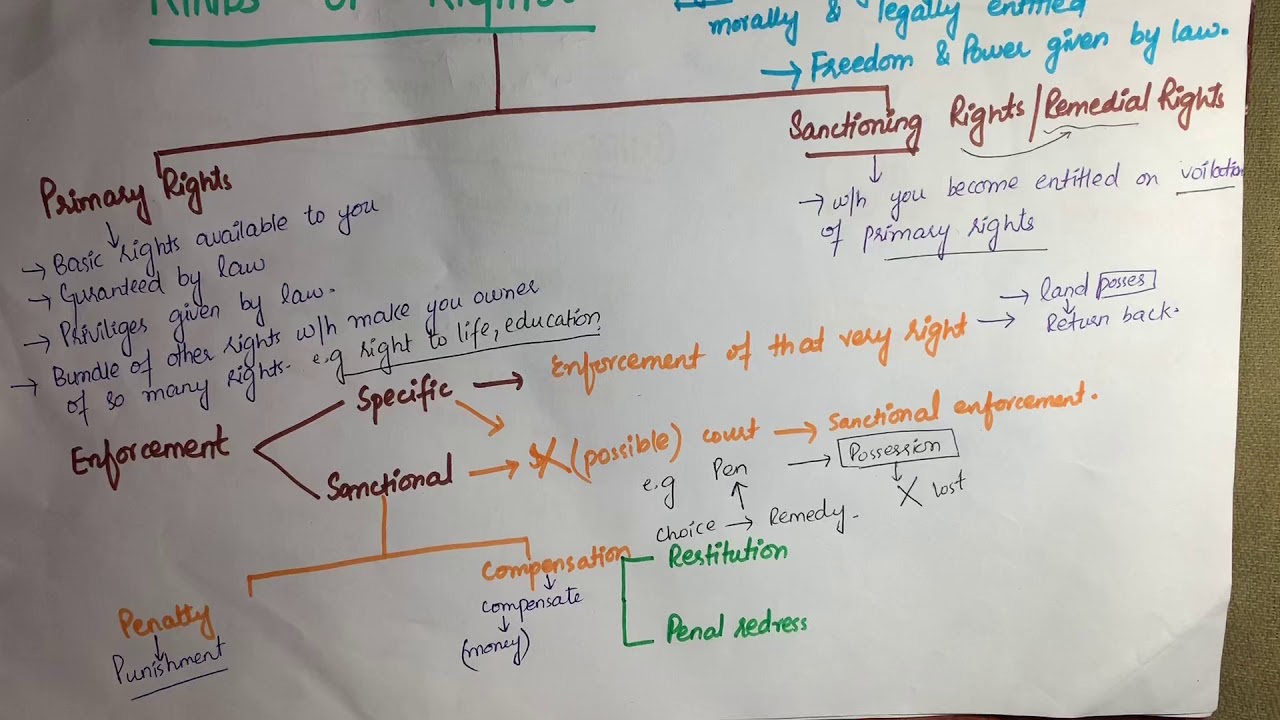 Kinds of Rights.
morally & legally entitled
→ Freedom & Power given by law.
Sanctioning Rights/Remedial Rights
→ w/h you become entitled on voilation
of primary rights
Primary Rights
→ Basic rights available to you
→ Guranteed by law
→ Priviliges given by law.
→ Bundle of other rights w/h make you owner
of so many rights. e.g right to life, education
Enforcement
Specific → Enforcement of that very right → → land posses
Return back.
Sanctional → X (possible) court → Sanctional enforcement.
e.g Pen → Possession
X lost
choice → Remedy.
Penalty
Punishment
Compensation
compensate
(money)
Restitution
Penal redress